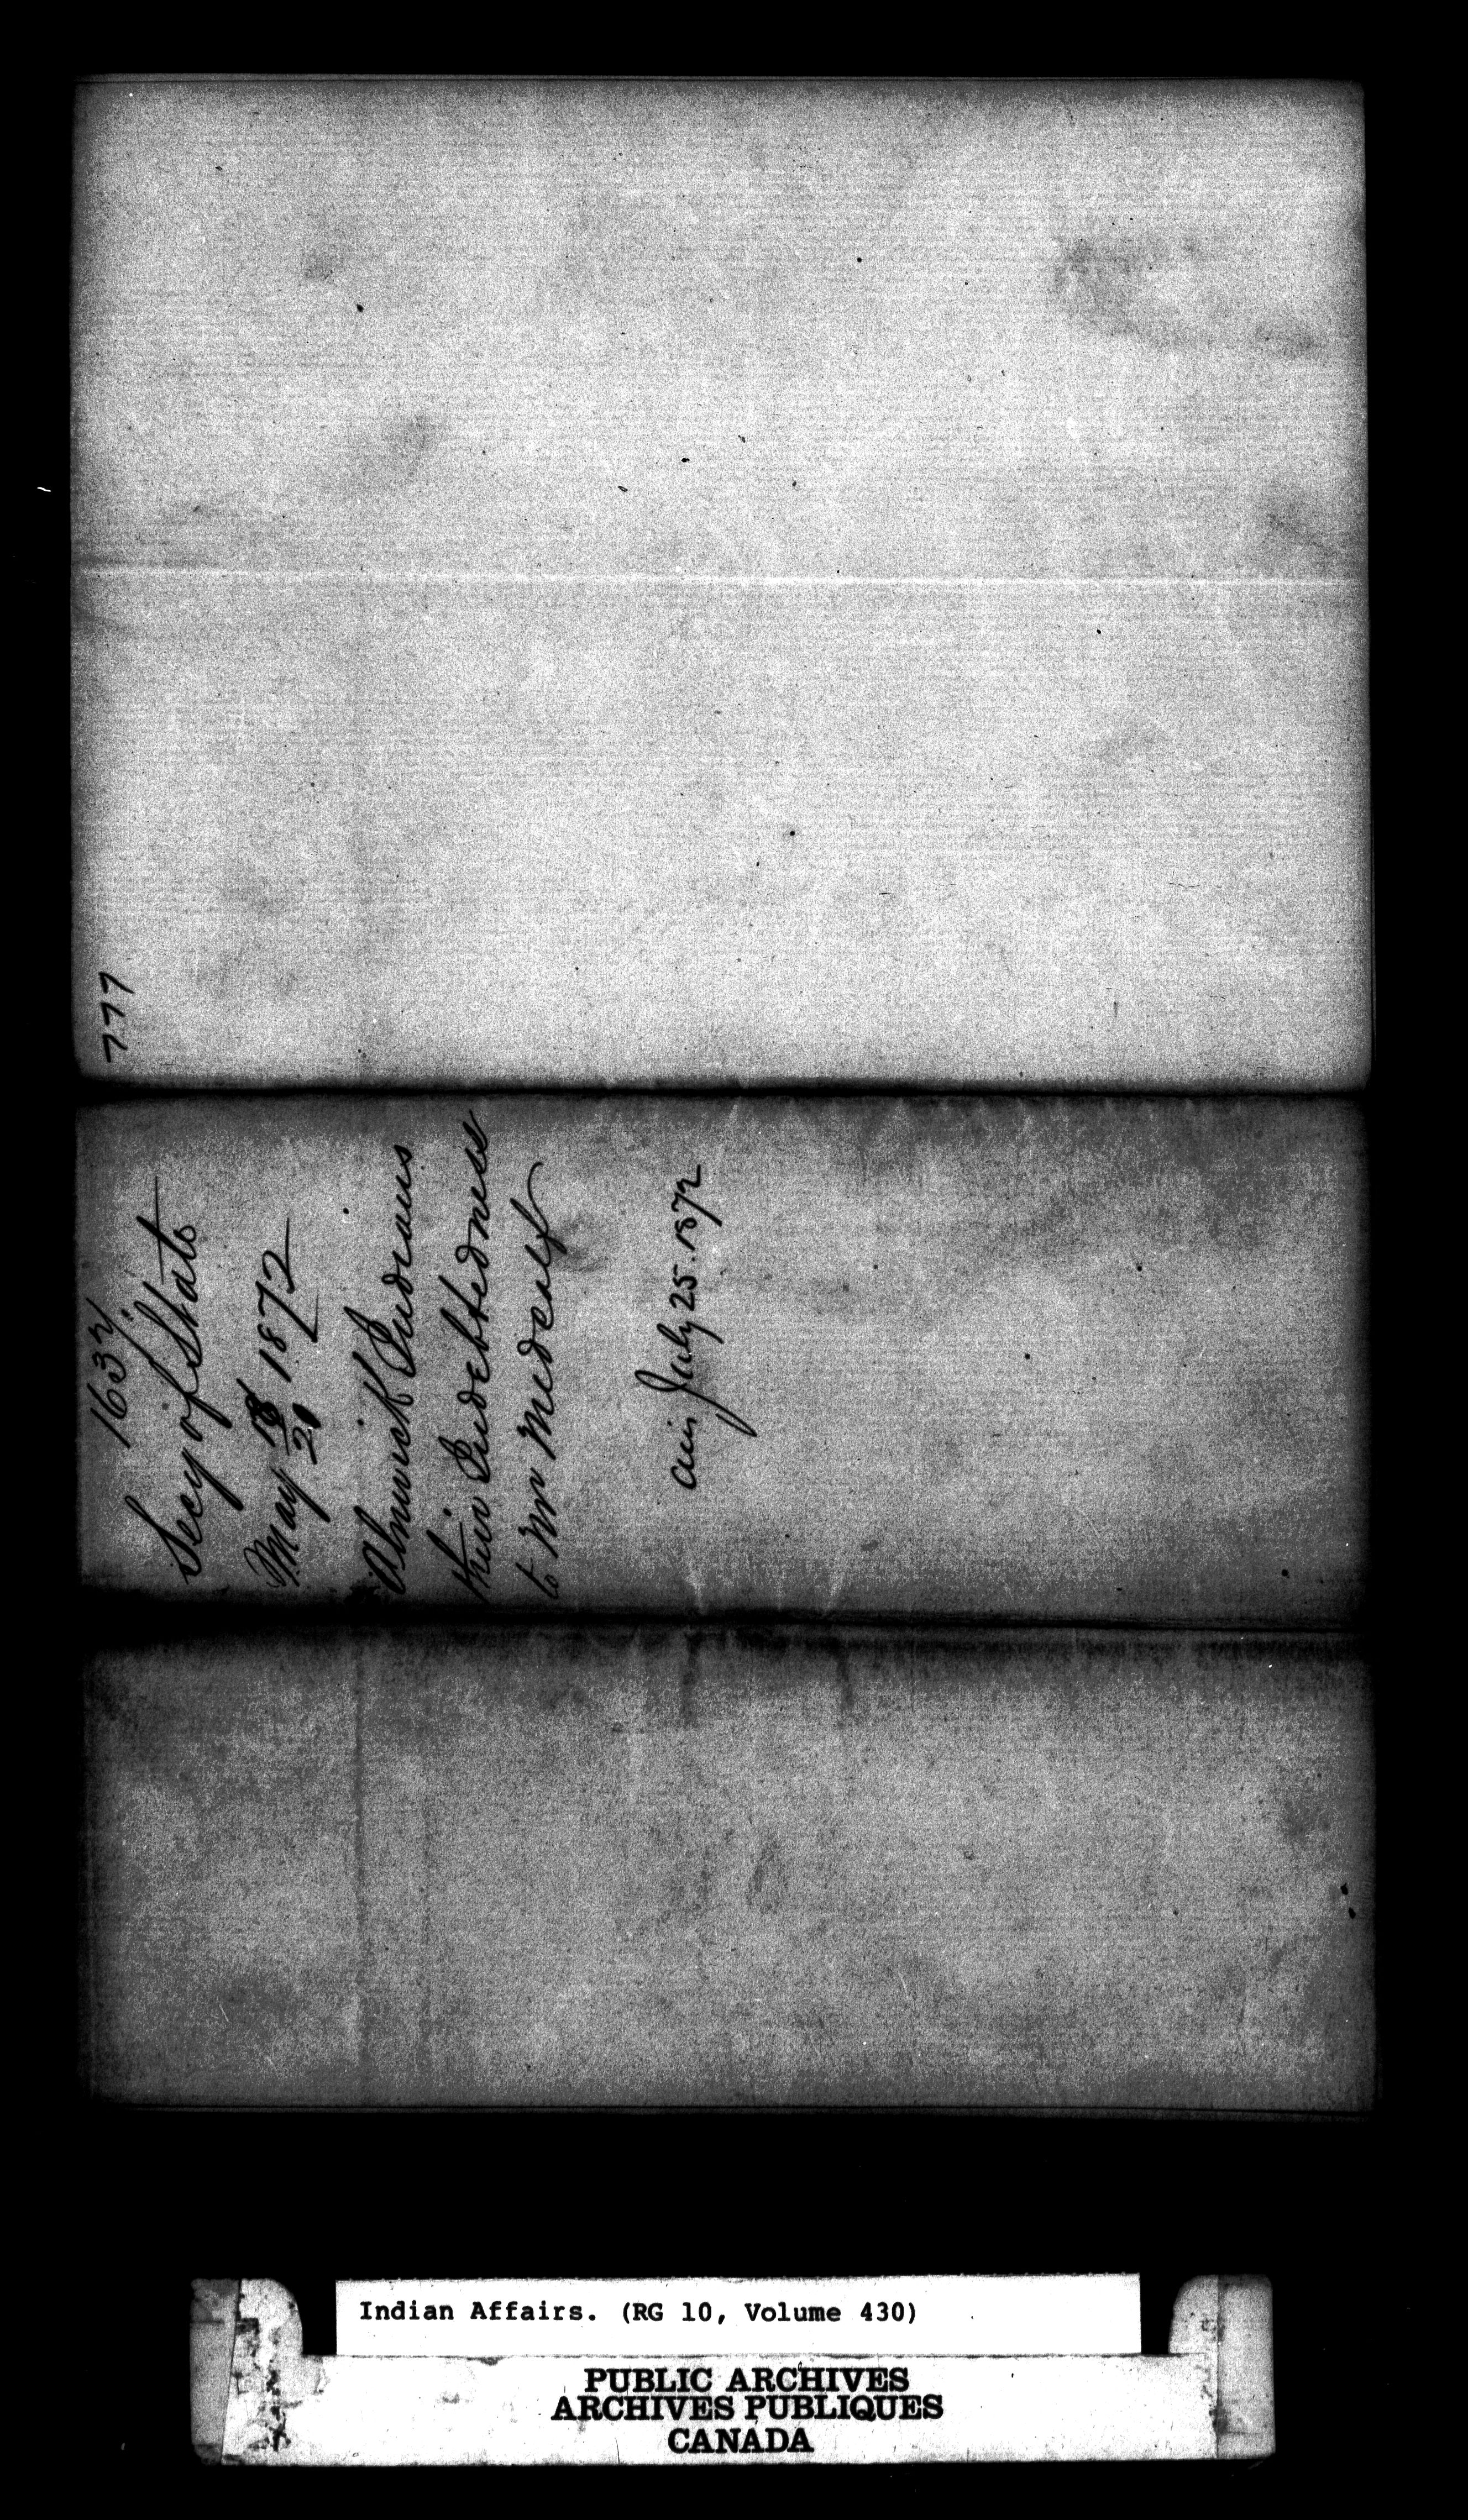 777
1632
Secy of State
May 18/21 1872
Alnwick Indians
their Indebtedness
to Wm Medcalf
July 25. 1872
Indian Affairs. (RG 10, Volume 430)
PUBLIC ARCHIVES
ARCHIVES PUBLIQUES
CANADA